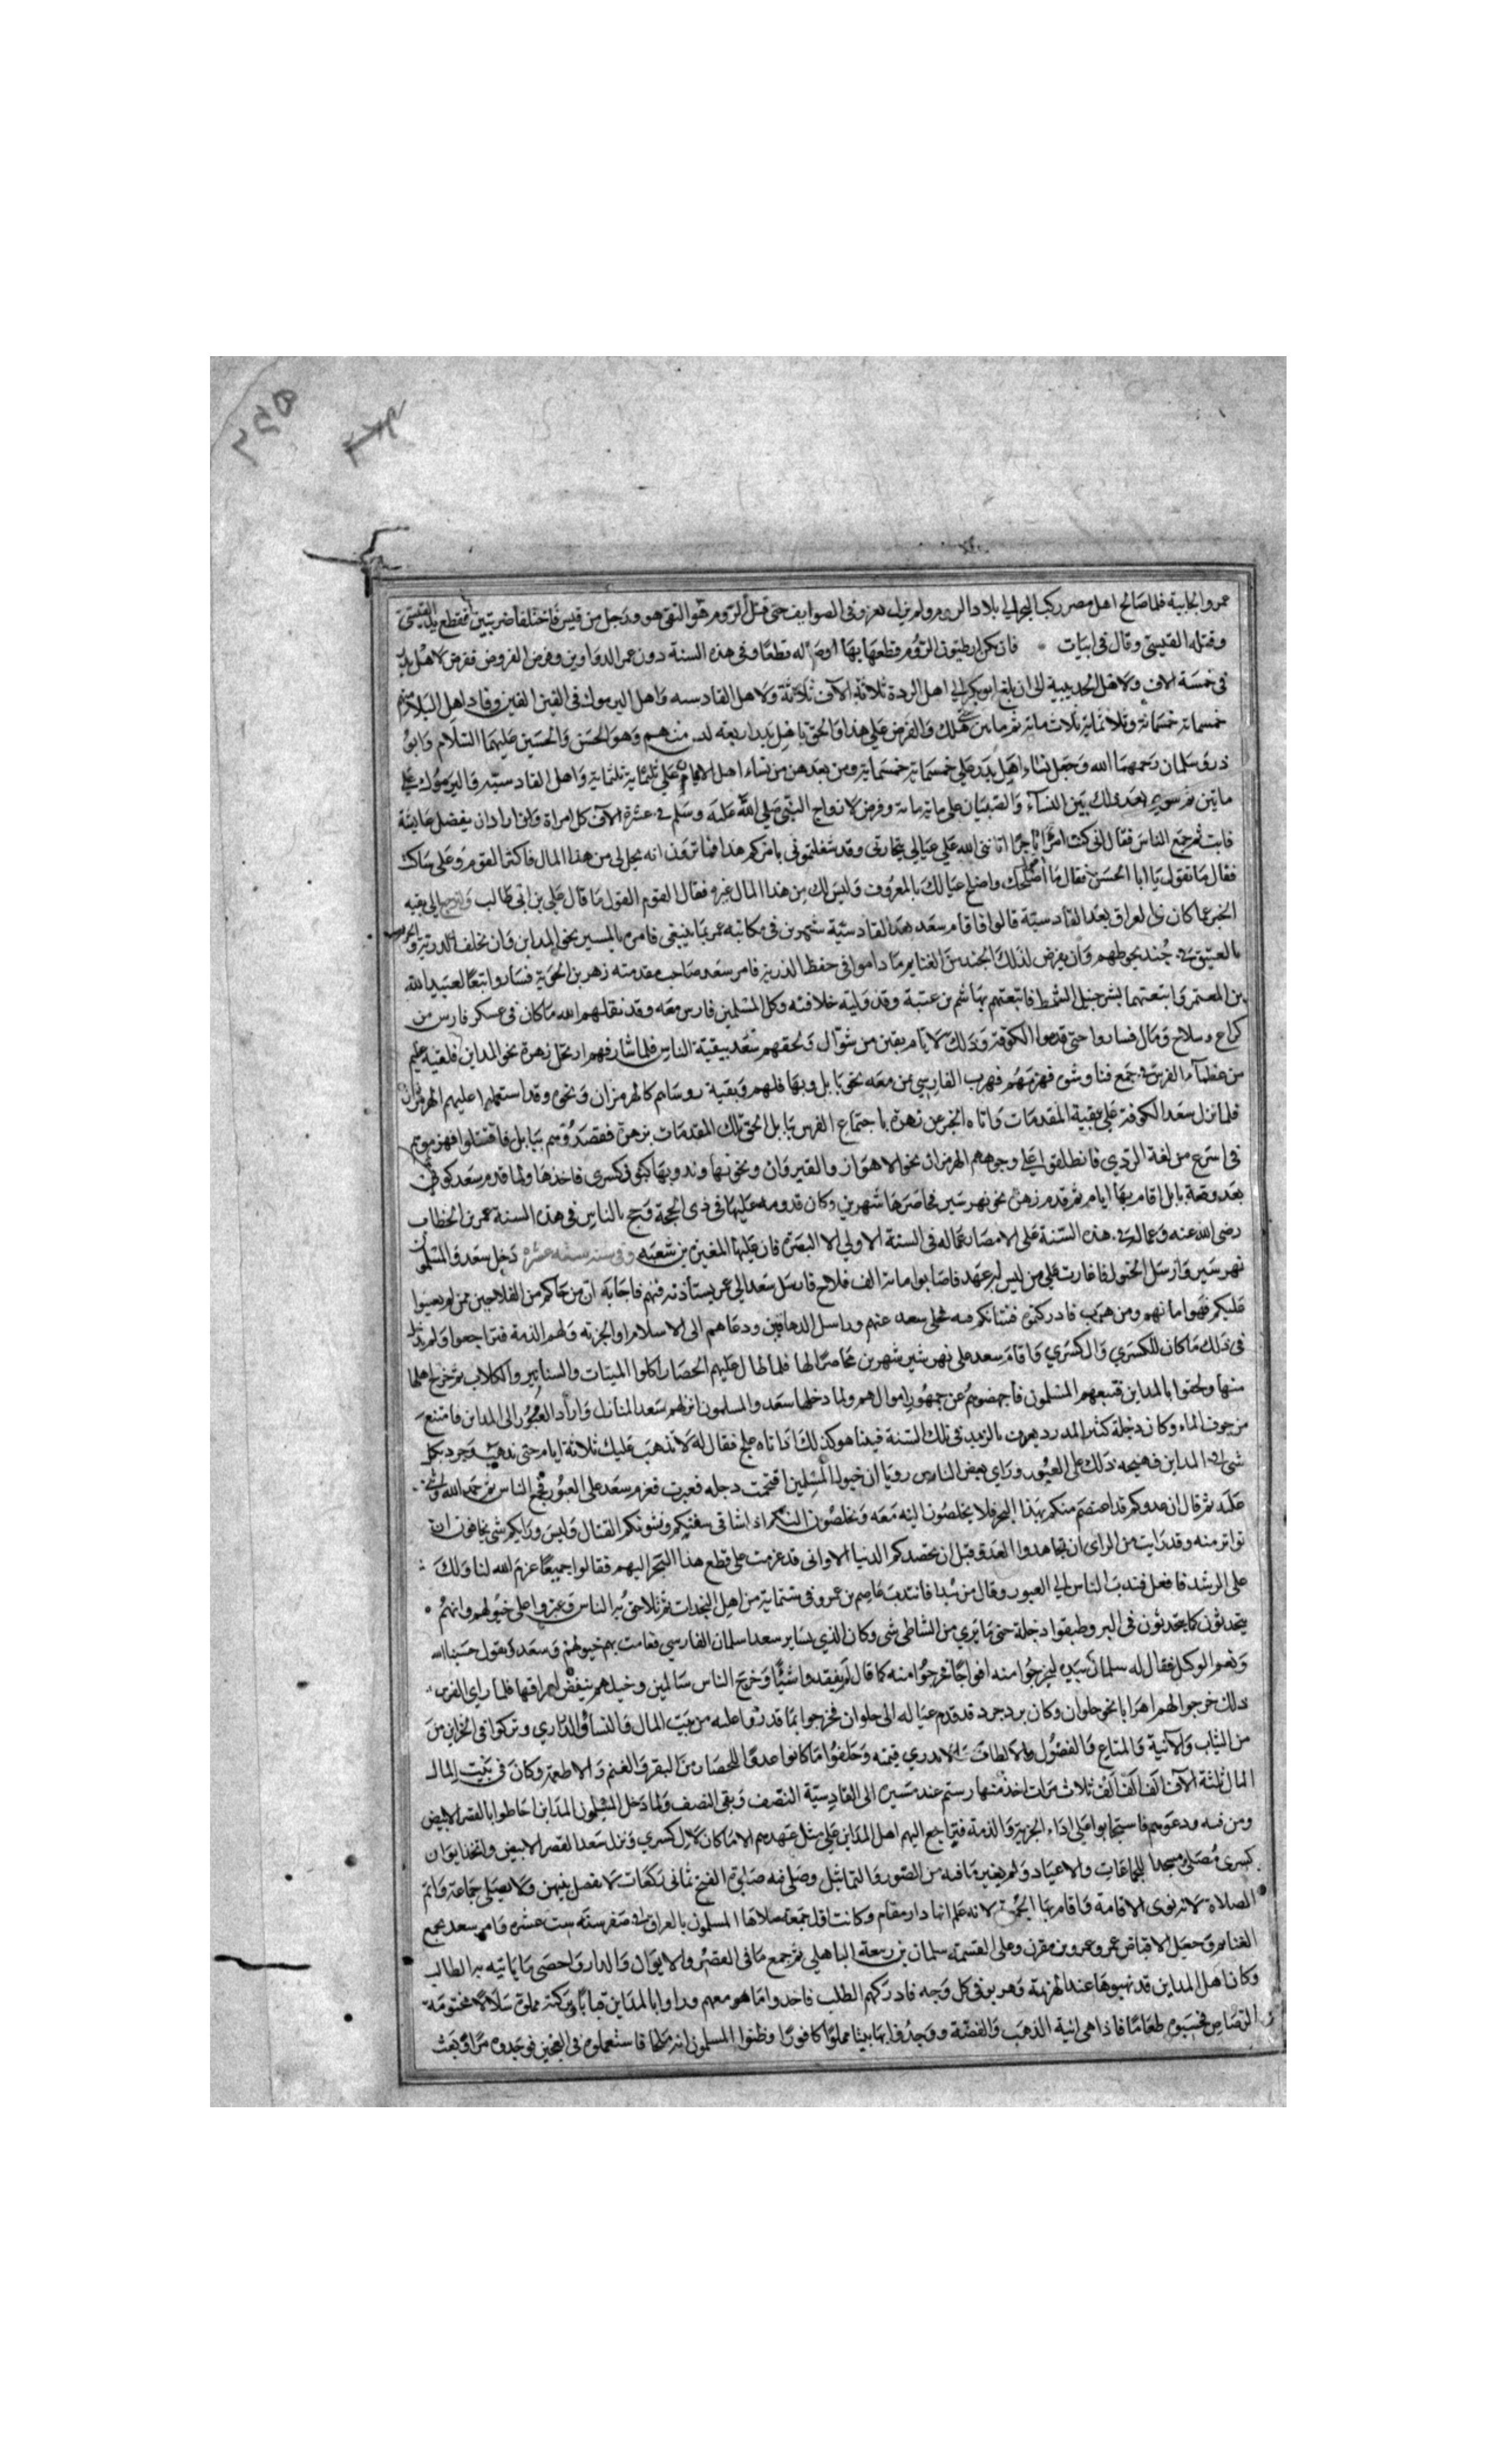 عمرو الجابية فلما صالح اهل مصر ركب البحر الى بلاد الروم ولم يزل يغزو فى الصوايف حتى قتل الروم هو التقى هو ورجل من قيس فاختلفا ضربتين فقطع يد القيسى
وقتله القيسى وقال فى ابيات فان يكن ارطبون الروم قطعها بها اوصاله قطعا وفى هذه السنة دون عمر الدواوين وفرض الفروض ففرض لاهل بدر
فى خمسة الاف ولاهل الحديبية الى ان بلغ ابو بكر الى اهل الردة ثلاثة الاف ثلاثة ولاهل القادسيه واهل اليرموك فى الفين الفين وفا اهل البلا
خمسماية خمسماية وثلاثماية ثلاث ماية ثم مايتين هلك والفرض على هذا والحق باهل بدر اربعة منهم وهو الحسن والحسين عليهما السلام وابو
ذر وسلمان رحمهما الله وجعل نساء اهل بدر على خمسماية خمسماية ومن بعدهن من نساء اهل الايام على ثلثماية ثلثماية واهل القادسية واليرموك على
مايتين ثم سوى بعد ذلك بين النساء والصبيان على ماية ماية وفرض لازواج النبى صلى الله عليه وسلم عشرة الاف كل امراة وان اراد ان يفضل عايشة
فابت ثم جمع الناس فقال انى كنت امرا تاجرا اتانى الله على عيالى بتجارتى وقد شغلتمونى بامركم هذا فما ترون انه يحل لى من هذا المال فاكثر القوم وعلى ساكت
فقال ما تقول يا ابا الحسن فقال ما اصلحك واصلح عيالك بالمعروف وليس لك من هذا المال غيره فقال القوم القول ما قال على بن ابى طالب الى بقيه
الخبر عما كان فى العراق بعد القادسية قالوا فاقام سعد بعد القادسية شهرين فى مكاتبه عمر بما ينبغى فامره بالمسير نحو المداين وان يخلف
بالعتيق جند يحوطهم وان يفرض لذلك الجند من الغنايم ما داموا فى حفظ الذرية فامر سعد صاحب مقدمته زهرة بن الحوية فسار واتبعه لعبد الله
بن المعتمر واتبعهما بشرحبيل السمط فاتبعتهم بهاشم بن عتبة وقد وليه خلافته وكل المسلمين فارس معه وقد نقلهم الله ما كان فى عسكر فارس من
كراع وسلاح ومال فساروا حتى قدموا الكوفة وذلك لايام بقين من شوال ولحقهم سعد ببقية الناس فلما شارفهم ارتحل زهرة نحو المداين فلقيه
من عظماء الفرس جمع فناوشوه فهزمهم فهرب الفارسى من معه نحو بابل وبها فلهم وبقية روساهم كالهرمزان ونحوه وقد استعملوا عليهم
فلما نزل سعد الكوفة على بقية المقدمات واتاه الخبر عن زهرة باجتماع الفرس ببابل الحق تلك المقدمات بزهرة فقصدوهم ببابل فاقتتلوا فهزموهم
فى اسرع من لفة الردى فانطلقوا على وجوههم الهرمزان نحو الاهواز والفيروان ونحو نهاوند وبها كنوز كسرى فاخذها ولما قدم سعد
بعد وقعة بابل اقام بها ايام ثم قدم زهرة نحو نهرسير فحاصرها شهرين وكان قدومه عليها فى ذى الحجة وحج بالناس فى هذه السنة عمر بن الخطاب
رضى الله عنه وعماله هذه السنة على الامصار عماله فى السنة الاولى الا البصرة فان عليها المغيرة بن شعبه وفى سنة ستة عشرة دخل سعد والمسلمون
نهرسير وارسل الخيول فاغارت على من ليس له عهد فاصابوا ماية الف فلاح فارسل سعد الى عمر يستاذنه فيهم فاجابه ان من جاكم من الفلاحين ممن لم يعينوا
عليكم فهو امانهم ومن هرب فادركتموه فشانكم به فخلى سعد عنهم وراسل الدهاقين ودعاهم الى الاسلام او الجزيه ولهم الذمة فتراجعوا ولم
فى ذلك ما كان للكسرى وال كسرى واقام سعد على نهرشير شهرين محاصرا لها فلما طال عليهم الحصار اكلوا الميتات والسنانير والكلاب ثم خرج اهلها
منها ولحقوا بالمداين فتبعهم المسلمون فاجهضوهم عن جمهور اموالهم ولما دخلها سعد والمسلمون انزلهم سعد المنازل واراد العبور الى المداين فامتنع
من جوف الماء وكان دجلة كثير المد بالزبد فى تلك السنة فبينا هو كذلك اذ اتاه علج فقال له لا تذهب عليك ثلاثة ايام حتى يذهب يزدجرد بكل
شى المداين فهيجه ذلك على العبور وراى بعض الناس رويا ان خيول المسلمين اقتحمت دجله فعبرت فعزم سعد على العبور فجمع الناس ثم حمد الله واثنى
عليه ثم قال ان عدوكم قد اعتصم منكم بهذا البحر فلا يخلصون اليه معه ويخلصون اليكم اذا شاو فى سفنهم ويشونكم القتال وليس وراكم شى تخافون ان
توا تر منه وقد رايت من الراى ان تجاهدوا العدو قبل ان يحصدكم الدنيا الا وانى قد عزمت على قطع هذا البحر اليهم فقالوا جميعا عزم الله لنا ولك
على الرشد فافعل فندب الناس الى العبور وقال من يبدا فانتدب عاصم بن عمرو فى ستماية من اهل النجدات ثم تلاحق به الناس وعبروا على خيولهم وانهم
يتحدثون كما يتحدثون فى البر وطبقوا دجلة حتى ما يرى من الشاطى شى وكان الذى يساير سعدا سلمان الفارسى فعامت بهم خيولهم وسعد يقول حسبنا الله
ونعم الوكيل فقال له سلمان ليخرجوا منه افواجا فخرجوا منه كما قال لم يفقدوا شيئا وخرج الناس سالمين وخيلهم ينفض اعرافها فلما راى الفرس
ذلك خرجوا لهم اهرابا نحو حلوان وكان يزدجرد قد قدم عياله الى حلوان فخرجوا بما قدروا عليه من بيت المال والنسا والذرارى وتركوا فى الخزاين من
من الثياب والانية والمتاع والفصول والالطاف ما لا يدرى قيمته وخلفوا ما كانوا اعدوا للحصار من البقر والغنم والاطعمة وكان فى بيت المال
المال ثلثة الاف الف الف الف ثلاث مرات اخذ منها رستم عند مسيره الى القادسية النصف وبقى النصف ولما دخل المسلمون المداين احاطوا بالقصر الابيض
ومن فيه ودعوهم فاستجابوا على اداء الجزية والذمة فتراجع اليهم اهل المداين على مثل عهدهم الا ما كان لال كسرى ونزل سعد القصر الابيض واتخذ ايوان
كسرى مصلى مسجدا للجماعات والاعياد ولم يغير ما فيه من الصور والتماثيل وصلى فيه صلاة الفتح ثمانى ركعات لا يفصل بينهن ولا يصلى جماعة واتم
الصلاة لانه نوى الاقامة واقام بها الجمعة لانه علم انها دار مقام وكانت اول جمعة صلاها المسلمون بالعراق فى صفر سنة ست عشره وامر سعد بجمع
الغنايم وجعل الاقباض عمرو عمرو بن مقرن وعلى القسمة سلمان بن ربيعة الباهلى ثم جمع ما فى القصر والايوان والدار واحصى ما ياتيه به الطالب
وكان اهل المداين قد نهبوها عند الهزيمة وهربوا فى كل وجه فادركهم الطلب فاخذوا ما هو معهم وراوا بالمداين قبابا تركية مملوة سلالا مختومة
الرصاص فحسبوه طعاما فاذا هى انية الذهب والفضة ووجدوا بها بيتا مملوا كافورا وظنوا المسلمون انه ملحا فاستعملوه فى العجين فوجدوه مرا وبعث